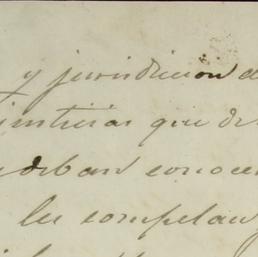 y jurisdiccion d
justicias que de
deban conocer
les compelan